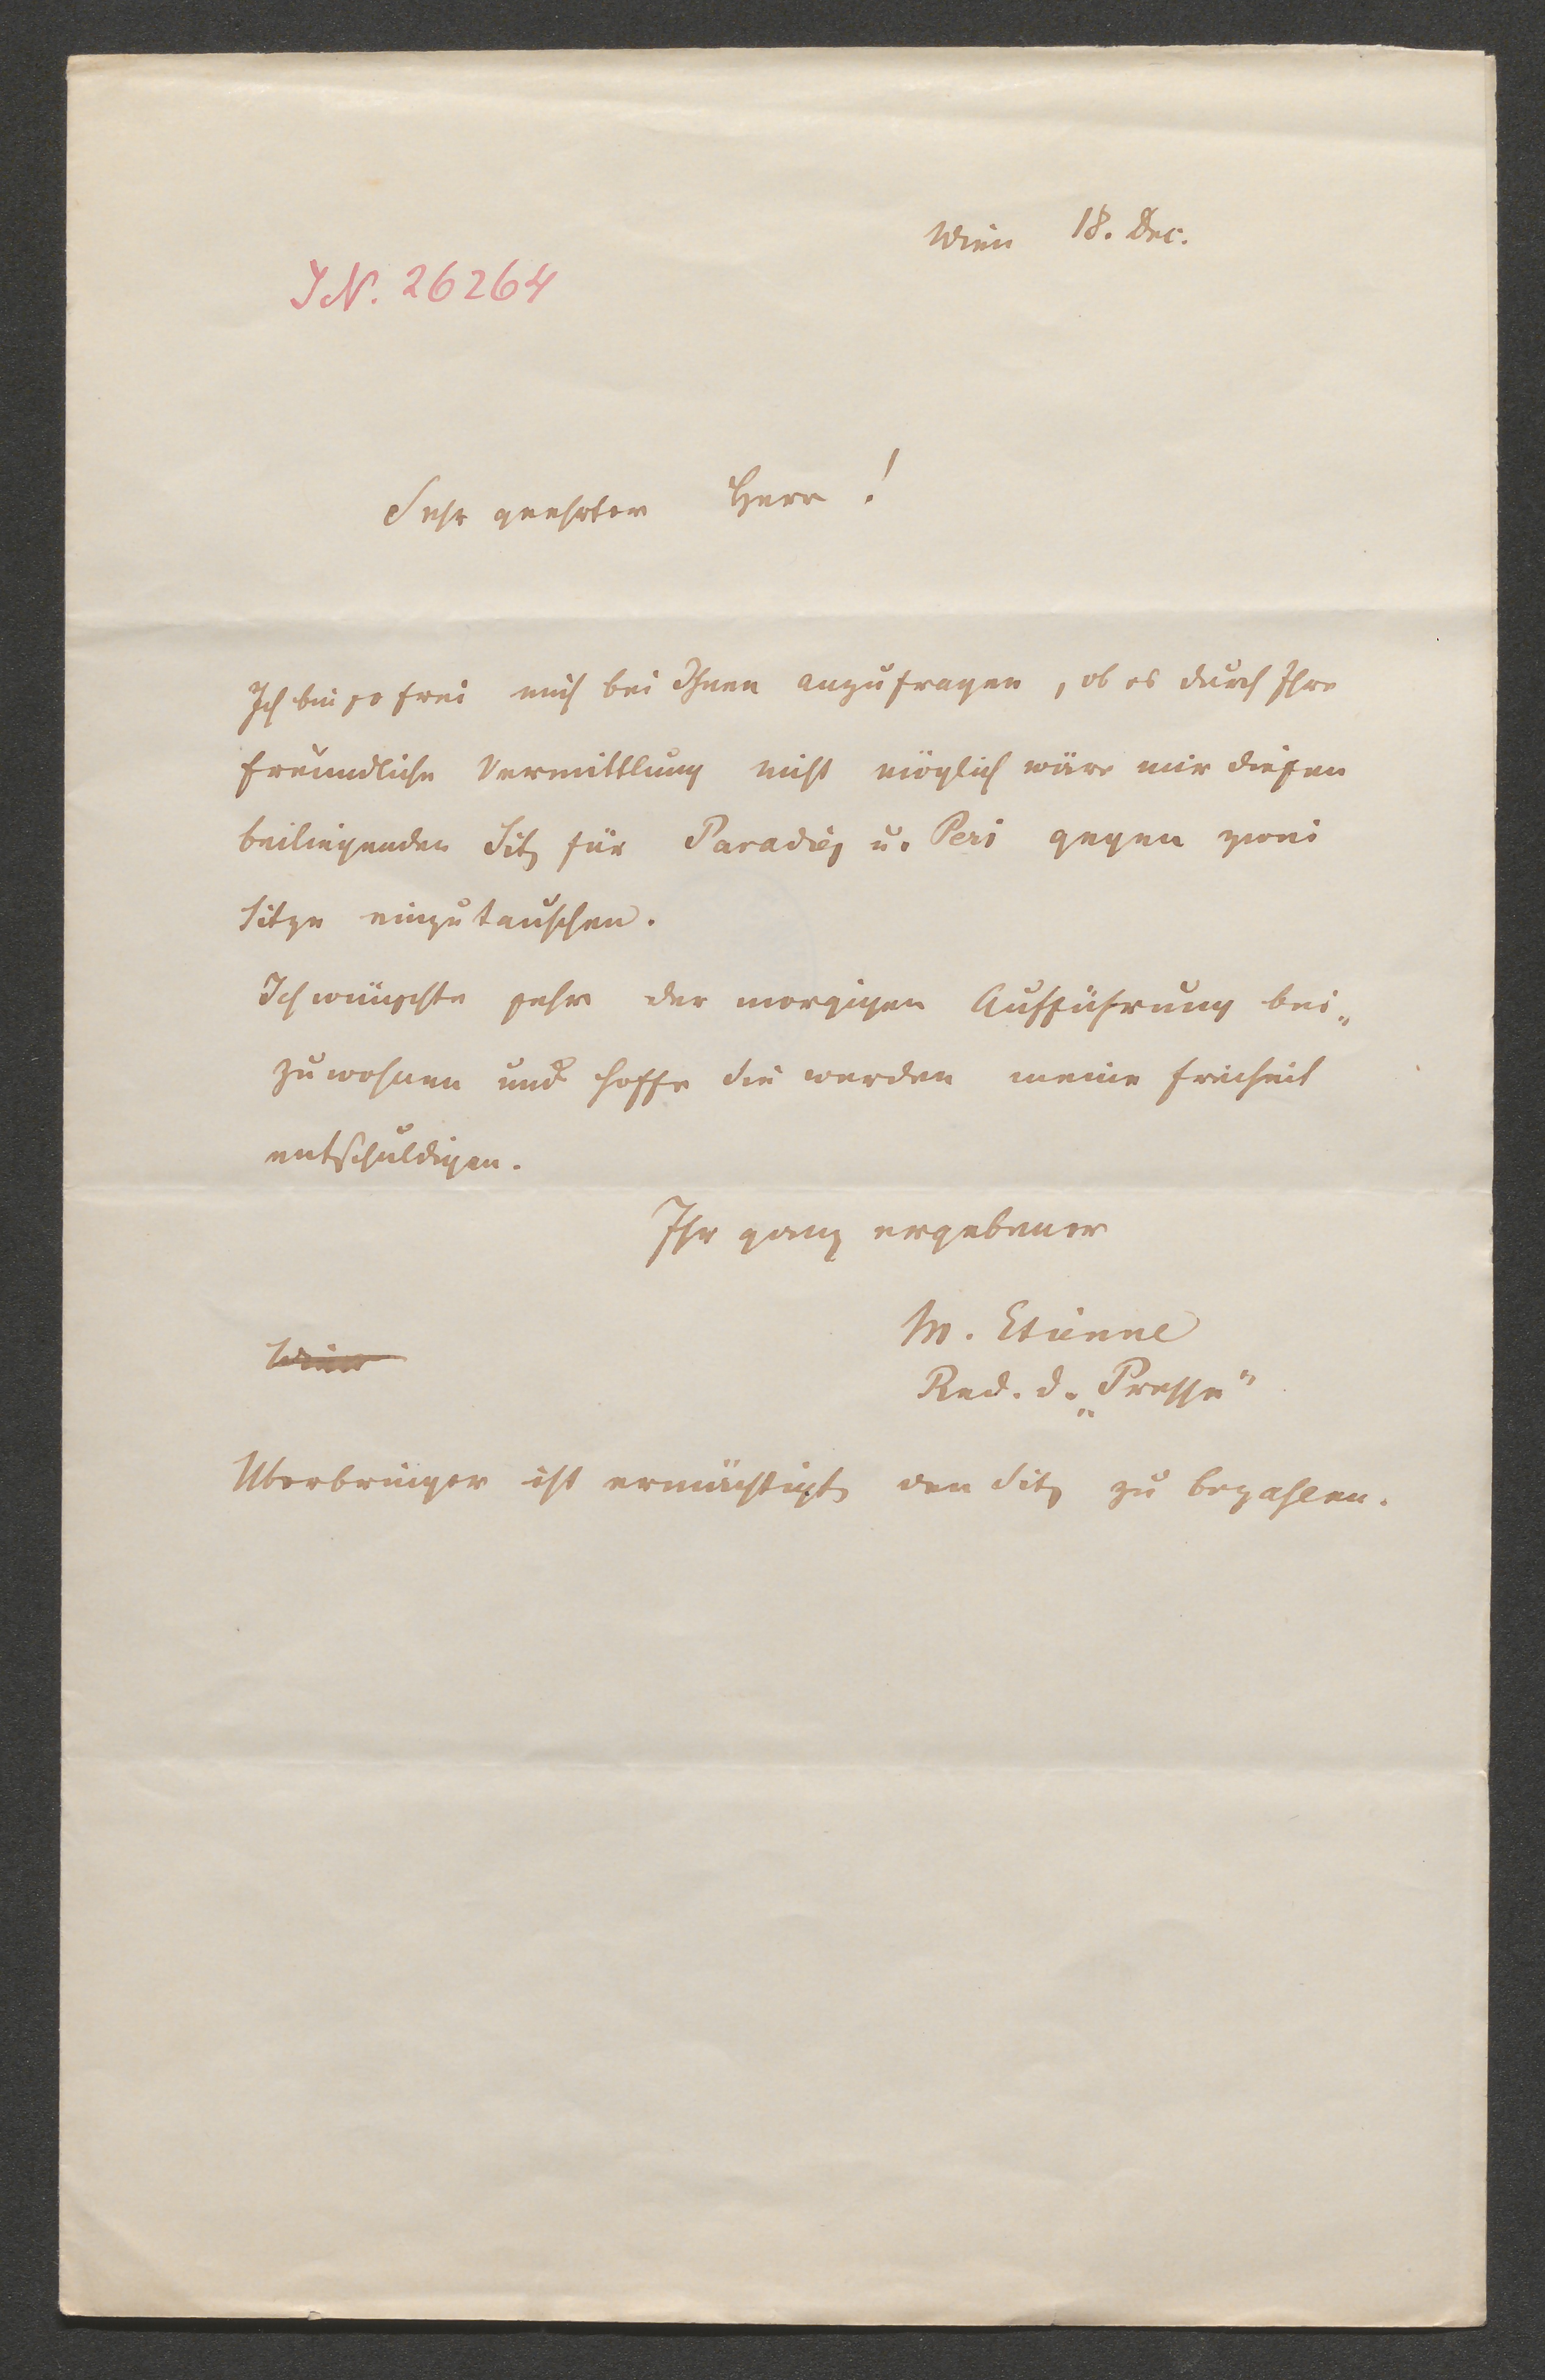 Wien 18. Dec.
IN. 26264
Sehr geehrter Herr!
Ich bin so frei mich bei Ihnen anzufragen, ob es durch Ihre
freundliche Vermittlung nicht möglich wäre mir diesen
beiliegenden Sitz für Paradies u. Peri gegen zwei
Sitze einzutauschen.
Ich wünschte sehr der morgigen Aufführung bei„
zuwohnen und hoffe Sie werden meine Freiheit
entschuldigen.
Ihr ganz ergebener
M. Etienne
Wien
Red. d. „Presse“
Überbringer ist ermächtigt den Sitz zu bezahlen.